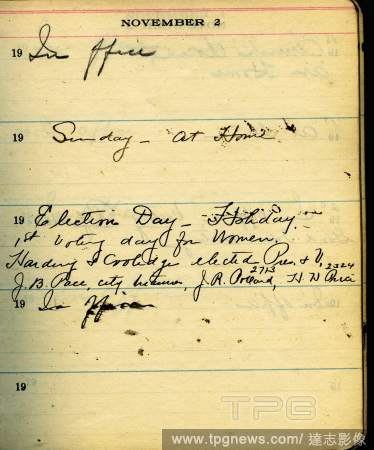 NOVEMBER 2
19 In office
19 Sunday - At Home
19 Election Day - Holiday -
1st Voting day for Women.
Harding & Coolidge elected Pres. & V.
2713 2324
J. B. Pace, city, J. R. Pollard, H N Price
19 In office
19
TPG
www.tpgnews.com/達志影像